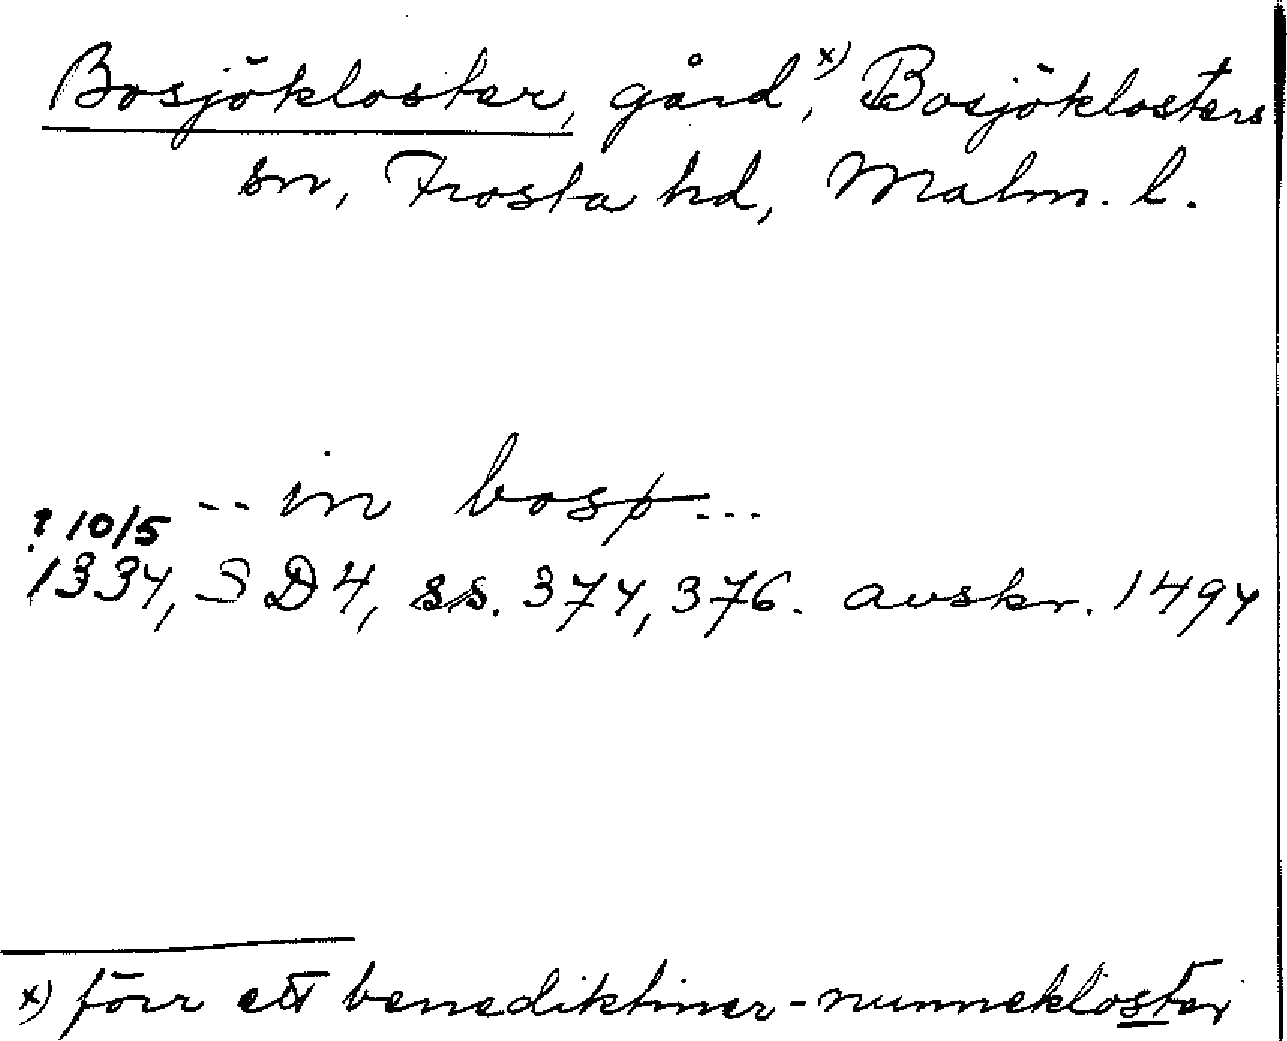 Bosjökloster, gård,x) Bosjöklosters
sn, Frosta hd, Malm. l.
-- in bosø ...
? 10/5
1334, SD 4, ss. 374, 376. avskr. 1494
x) förr ett benediktiner-nunnekloster